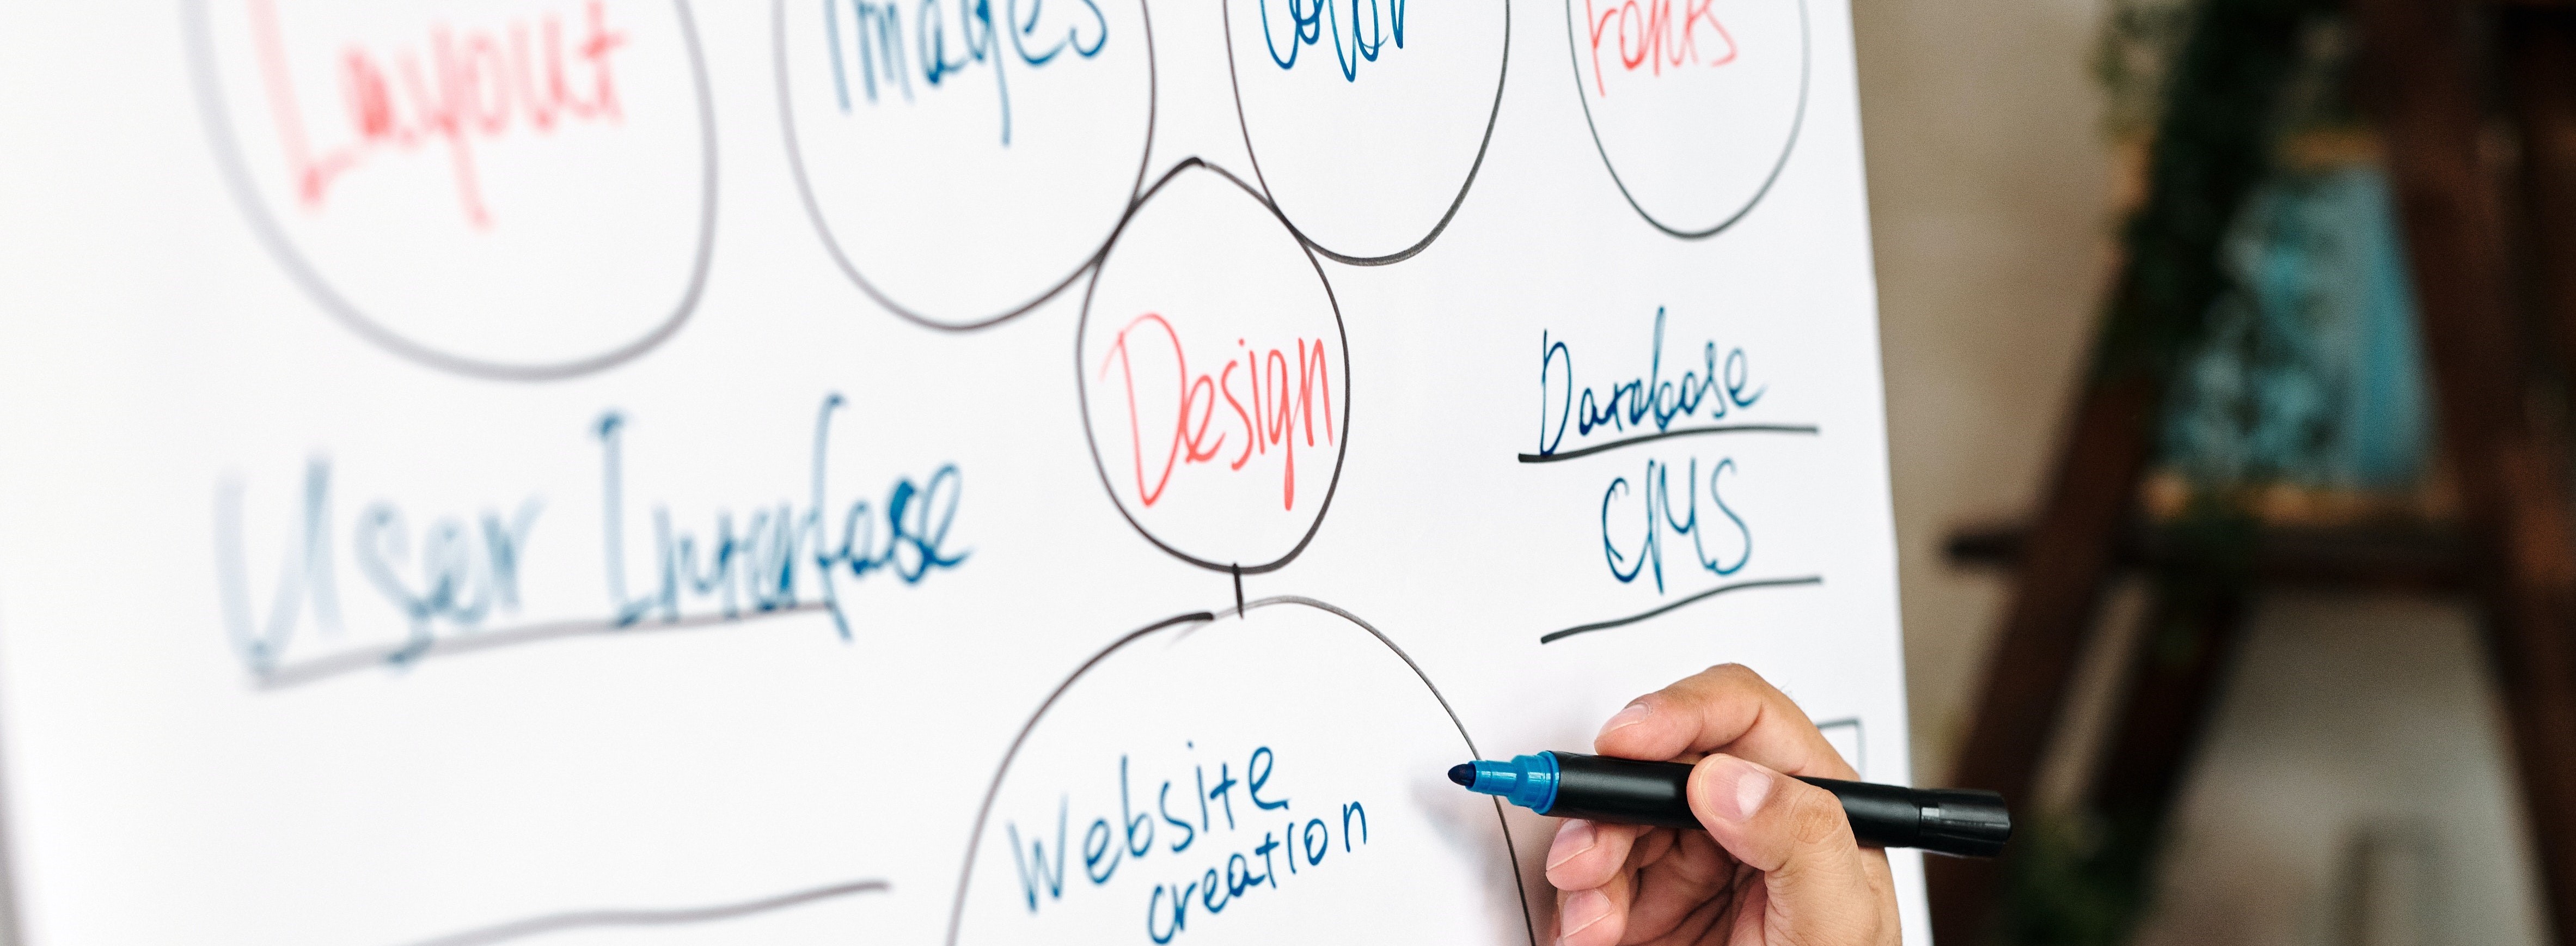 Layout
Images
Color
Fonts
Design
User Interfase
Database
CMS
Website
creation